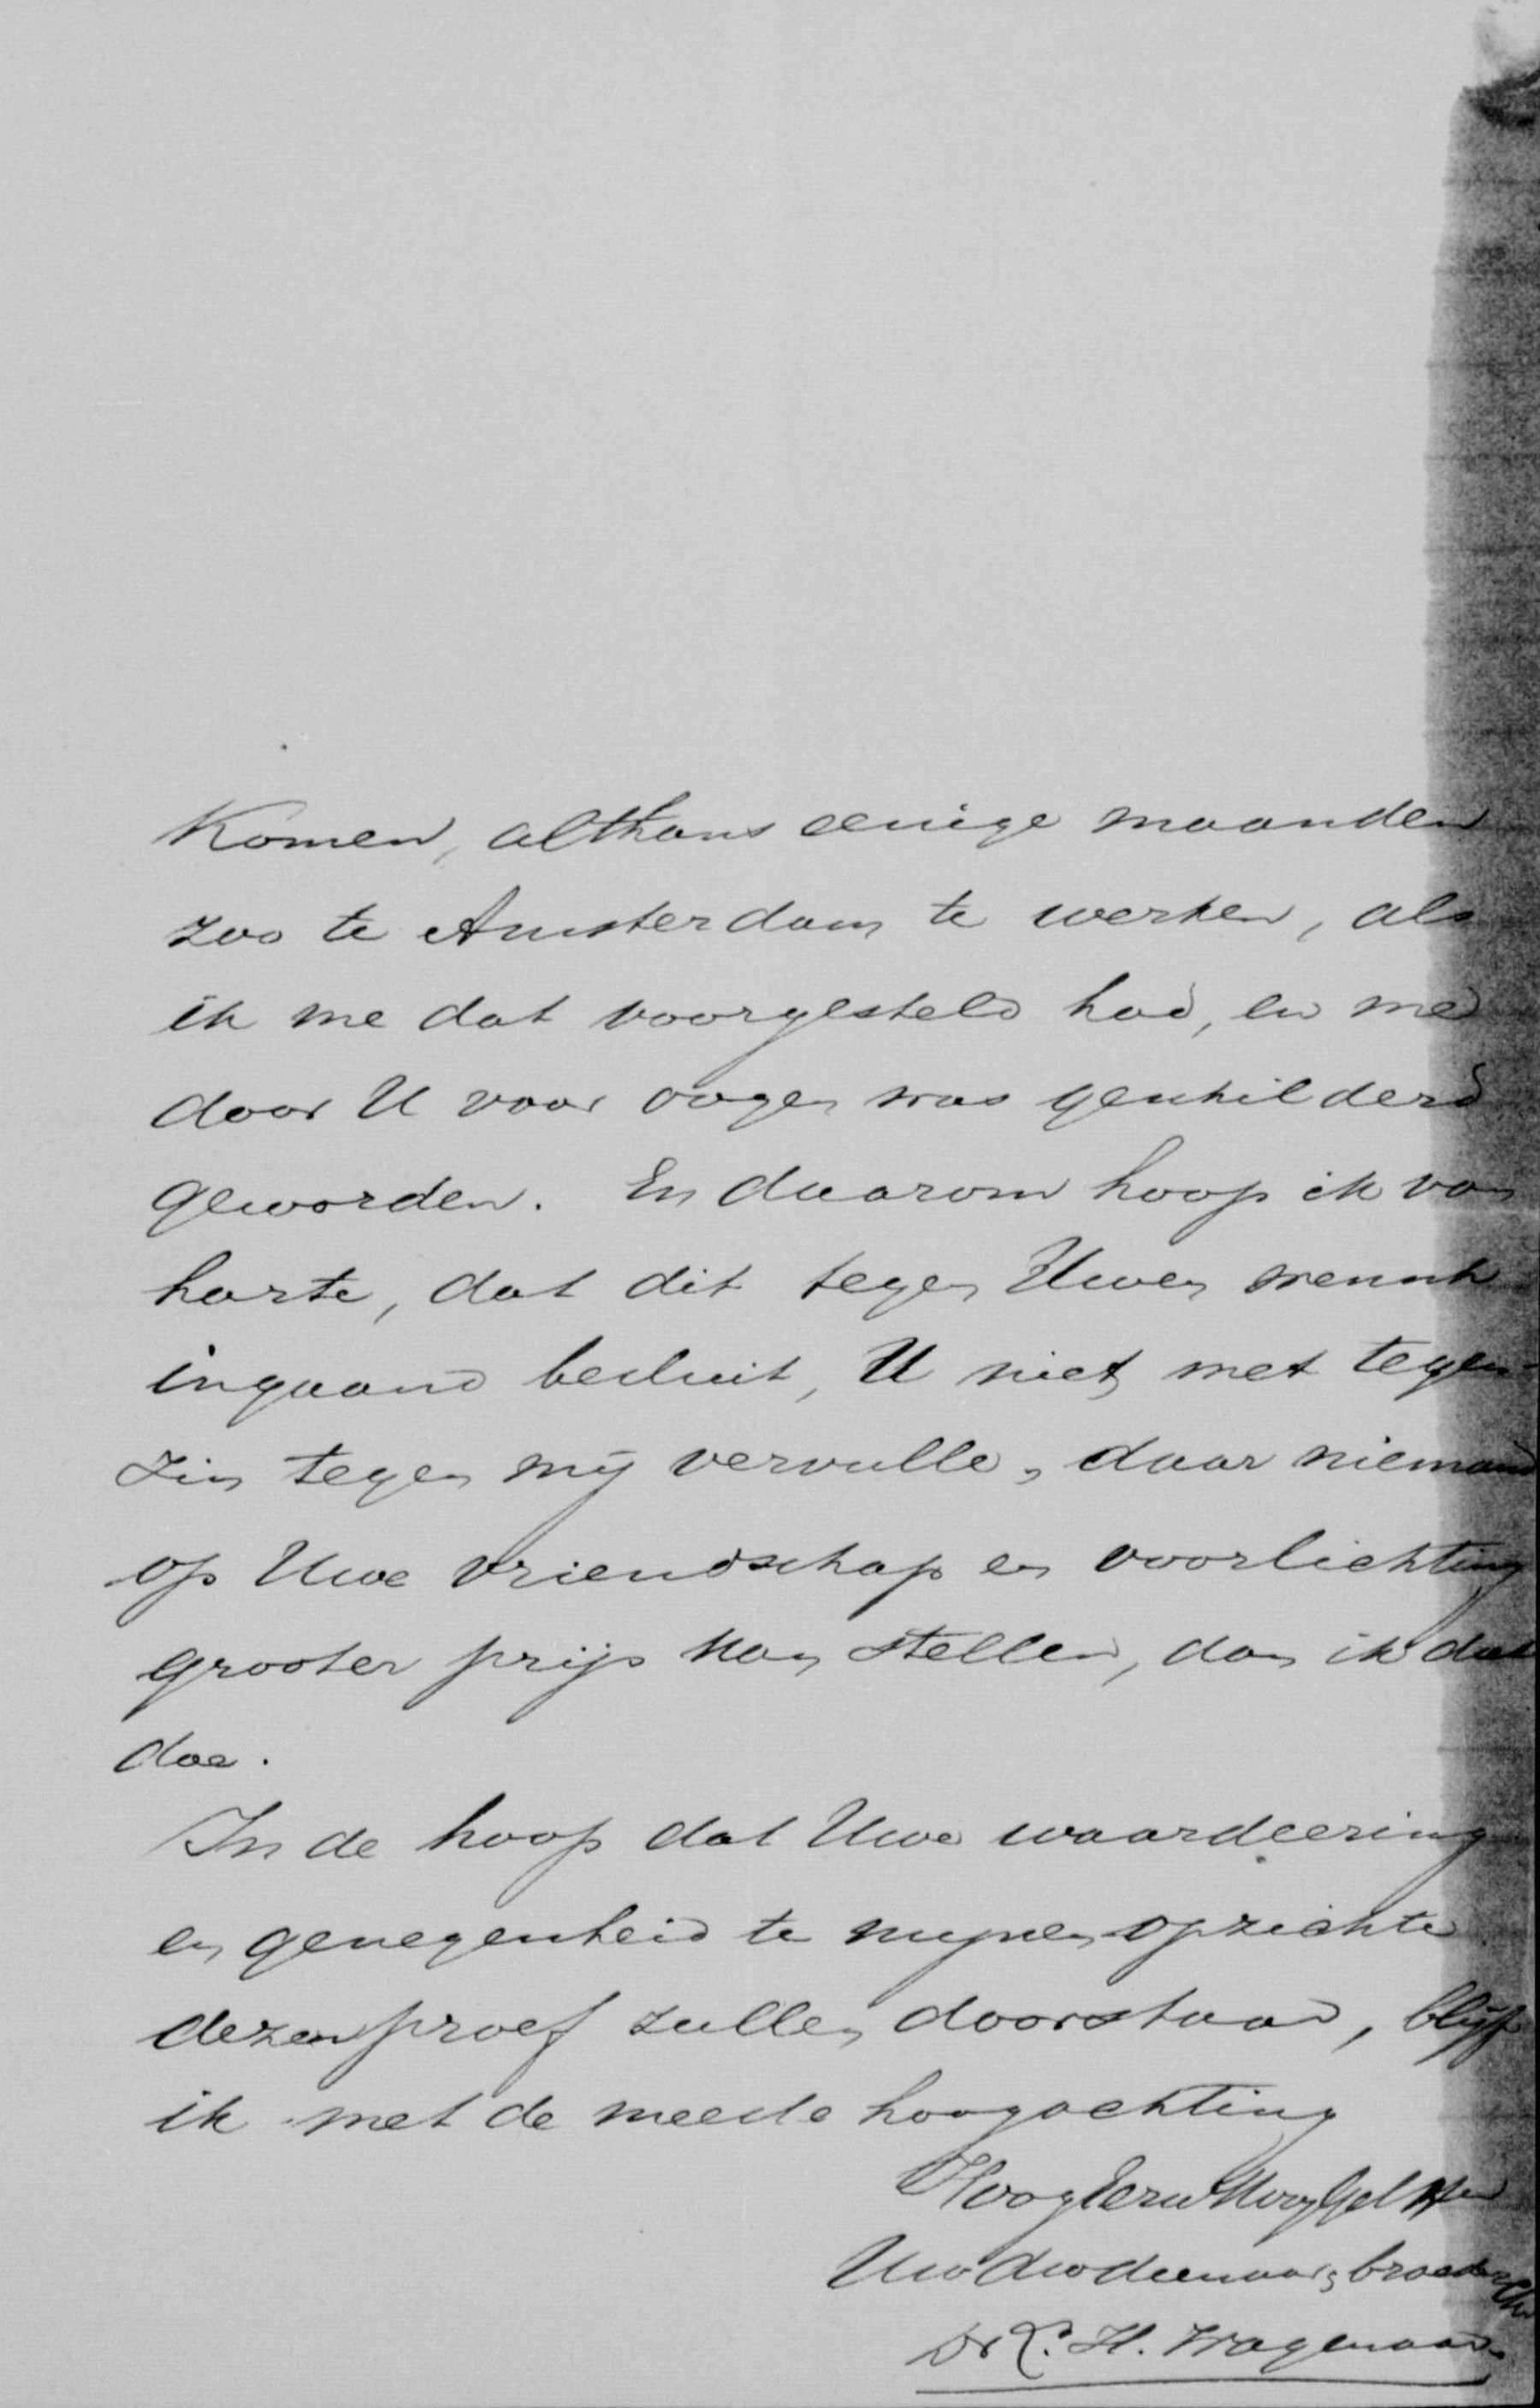 komen, althans eenige maanden
zoo te Amsterdam te werken, als
ik me dat voorgesteld had, en me
door U voor oogen was geschilderd
geworden. En daarom hoop ik van
harte, dat dit tegen Uwen wensch
ingaand besluit, U niet met tegen-
zin tegen mij vervulle, daar niemand
op Uwe vriendschap en voorlichting
grooter prijs kan stellen, dan ik dat
doe.
In de hoop dat Uwe waardeering
en genegenheid te mijnen opzichte
dezen proef zullen doorstaan, blijf
ik met de meeste hoogachting
HoogEerw HoogGel Heer
Uw dw dienaar & broeder
Dr L. H. Wagenaar